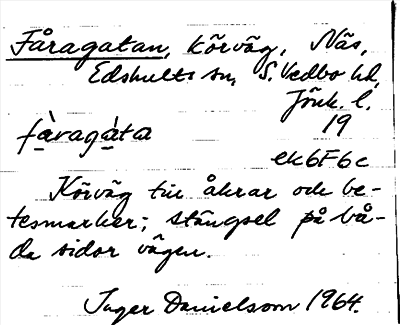 Fåragatan, körväg, Näs,
Edshults sn, S. Vedbo hd,
Jönk. l.
fà̱ragá̱ta 19
ek6F6c
Körväg till åkrar och be-
tesmarker; stängsel på bå-
da sidor vägen.
Inger Danielsson 1964.